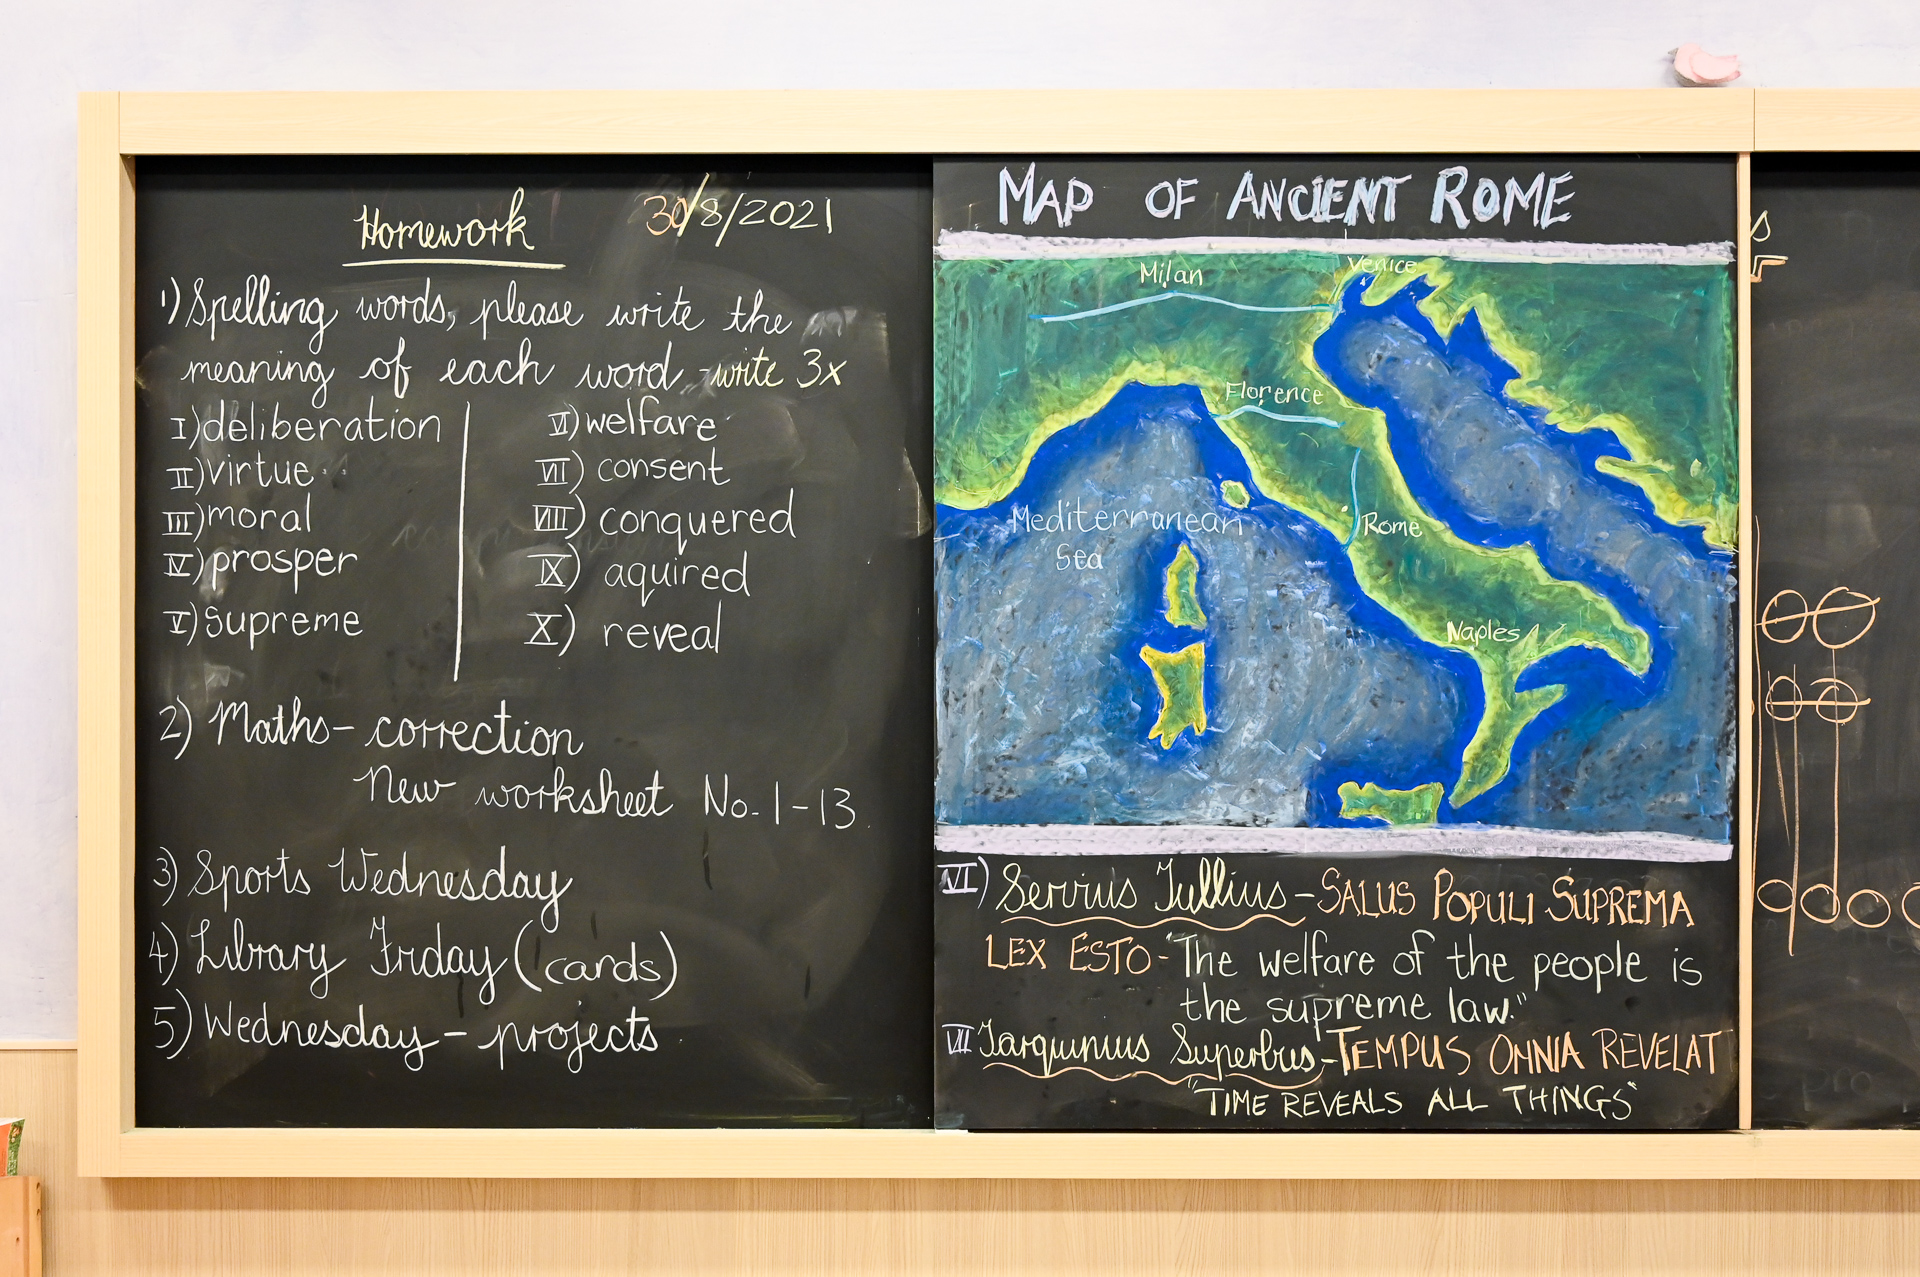 Homework 30/8/2021
1) Spelling words, please write the
meaning of each word - write 3x
I) deliberation
II) virtue
III) moral
IV) prosper
V) supreme
VI) welfare
VII) consent
VIII) conquered
IX) aquired
X) reveal
2) Maths - correction
New worksheet No. 1-13
3) Sports Wednesday
4) Library Friday (cards)
5) Wednesday - projects
MAP OF ANCIENT ROME
Milan
Venice
Florence
Mediterranean
Sea
Rome
Naples
VI) Servius Tullius - SALUS POPULI SUPREMA
LEX ESTO - "The welfare of the people is
the supreme law."
VII Tarquinius Superbus - TEMPUS OMNIA REVELAT
"TIME REVEALS ALL THINGS"